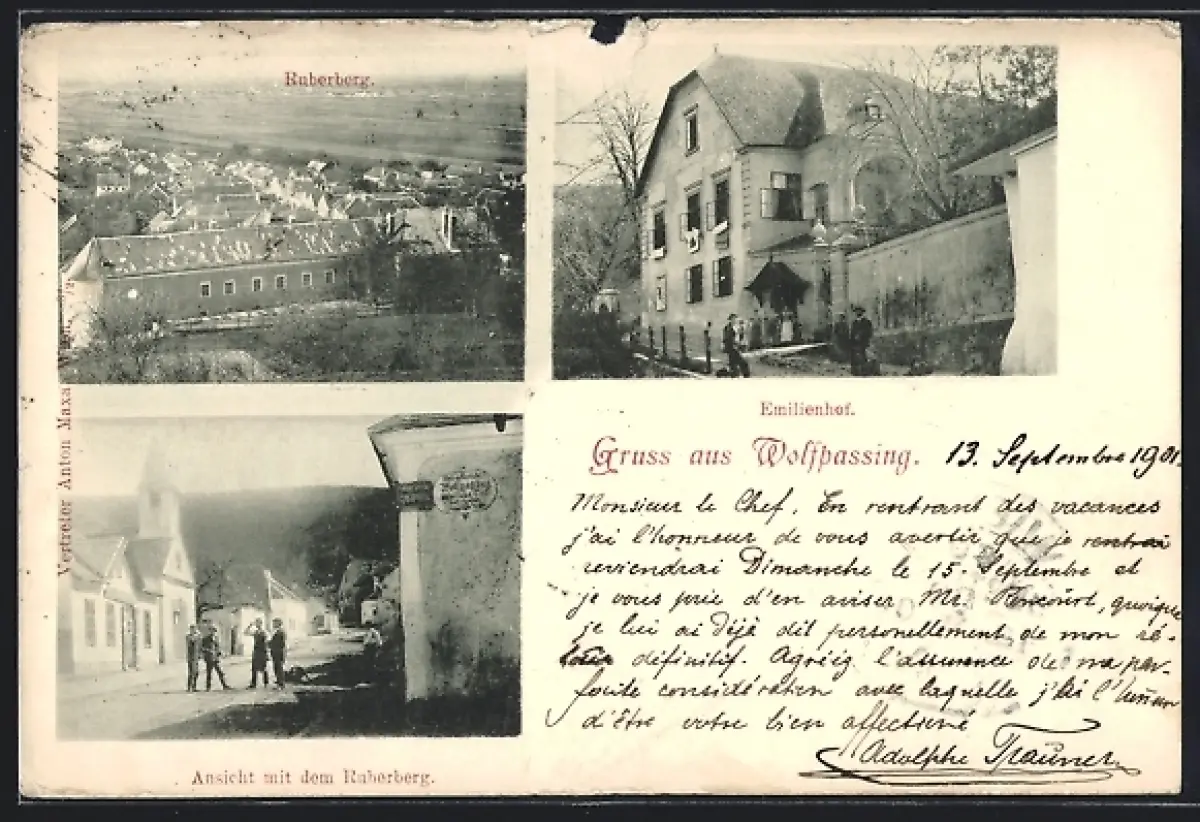 Ruberberg.
Emilienhof.
Gruss aus Wolfpassing. 13. Septembre 1901.
Monsieur le Chef. En rentrant des vacances
j'ai l'honneur de vous avertir que je rentrai
reviendrai Dimanche le 15. Septembre et
je vous prie d'en aviser Mr. quoique
je lui ai déjà dit personellement de mon ré-
tour définitif. Agréiz l'assurence de ma par-
faite considération avec laquelle j'ai l'honneur
d'être votre bien affectioné
Adolphe Trauner
Ansicht mit dem Ruberberg.
Vertreter Anton Maxa